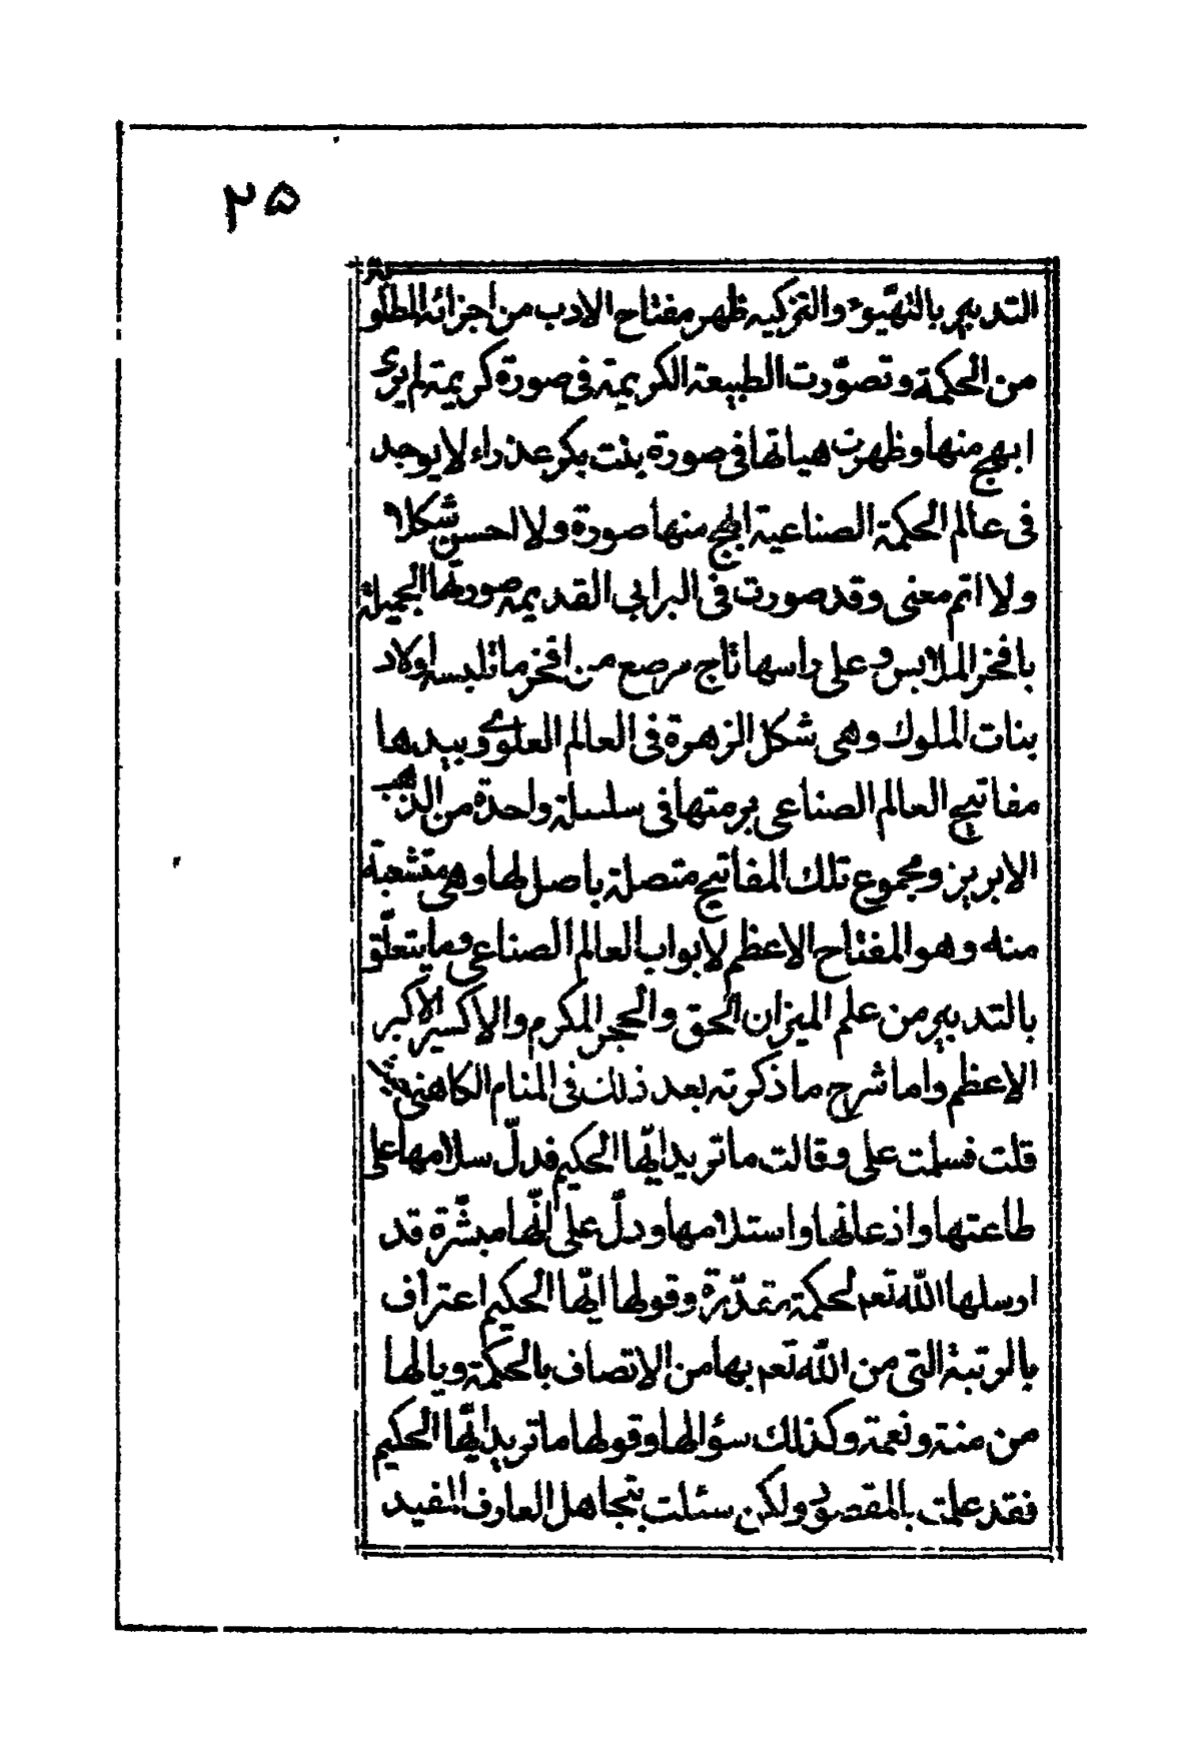 ٢٥
التدبير بالتهيّوء والتزكيه ظهر مفتاح الادب من اجزائه المطلوبة
من الحكمة وتصوّرت الطبيعة الكريمة فى صورة كريمة لم يرى
ابهج منها وظهرت هياتها فى صورة بنت بكر عذراء لا يوجد
فى عالم الحكمة الصناعية ابهج منها صورة ولا احسن شكلا
ولا اتم معنى وقد صورت فى البرابى القديمة صورتها الجميلة
بافخر الملابس وعلى راسها تاج مرصع من افخر ما تلبسه اولاد
بنات الملوك وهى شكل الزهرة فى العالم العلوى وبيدها
مفاتيح العالم الصناعى برمتها فى سلسلة واحدة من الذهب
الابريز ومجموع تلك المفاتيح متصلة باصل لها وهى متشعبة
منه وهو المفتاح الاعظم لابواب العالم الصناعى وما يتعلّق
بالتدبير من علم الميزان الحق والحجر المكرم والاكسير الاكبر
الاعظم واما شرح ما ذكرته بعد ذلك فى المنام الكاهنى
قلت فسلمت على وقالت ما تريد ايّها الحكيم فدلّ سلامها على
طاعتها واذعانها واستلامها ودلّ على انّها مبشّرة قد
ارسلها اللّه تعم لحكمة وقولها ايّها الحكيم اعتراف
بالرتبة التى من اللّه تعم بها من الاتصاف بالحكمة ويالها
من منة ونعمة وكذلك سؤالها وقولها ما تريد ايّها الحكيم
فقد علمت بالمقصود ولكن سئلت بتجاهل العارف المفيد